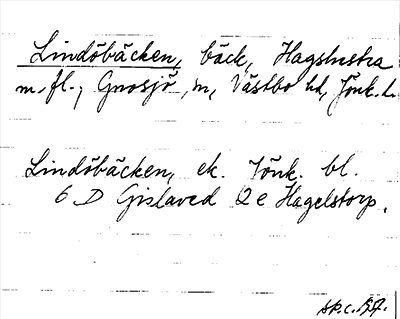 Lindöbäcken, bäck, Hagelstra
m.fl., Gnosjö, sn, Västbo hd, Jönk. l.
Lindöbäcken, ek. Jönk. bl.
6 D Gislaved 2 e Hagelstorp.
sk.c.